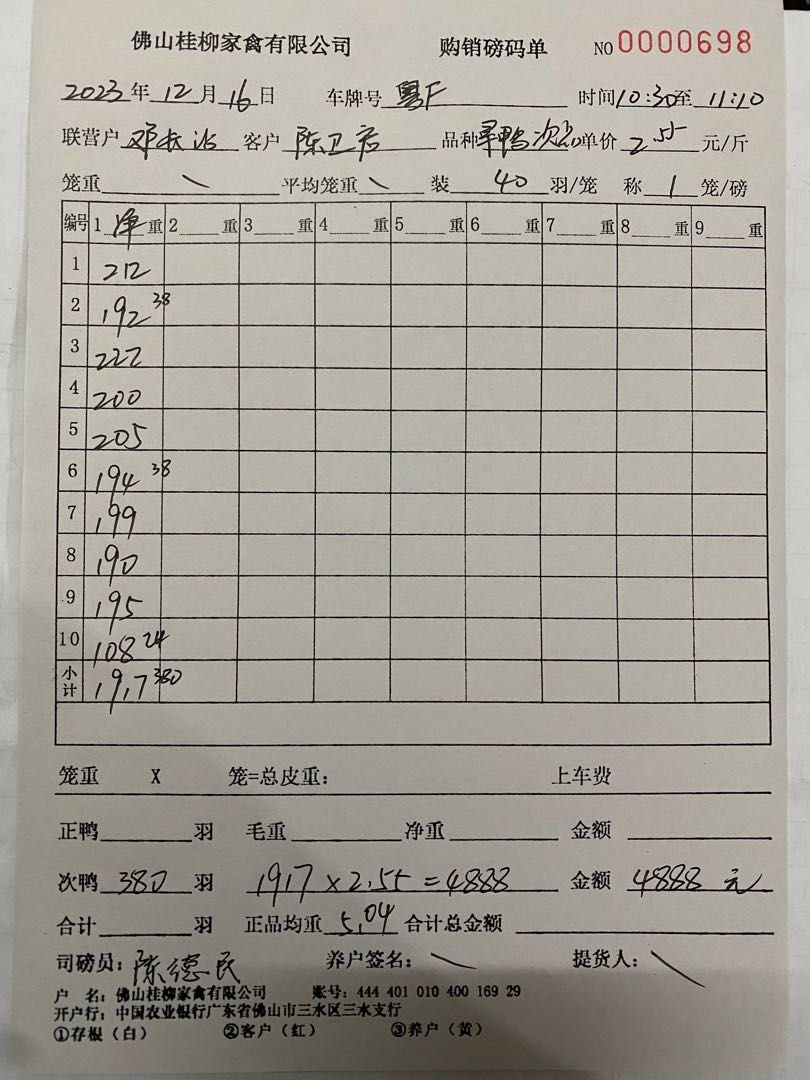 佛山桂柳家禽有限公司 购销磅码单 NO 0000698
2023年12月16日 车牌号 粤F 时间10:30至11:10
联营户 邓长 客户 陈卫 品种 鸭次 单价 2.55 元/斤
笼重 \ 平均笼重 \ 装 40 羽/笼 称 1 笼/磅
编号 1 净 重 2 重 3 重 4 重 5 重 6 重 7 重 8 重 9 重
1 212
2 192 38
3 222
4 200
5 205
6 194 38
7 199
8 190
9 195
10 108 24
小计 1917 380
笼重 X 笼=总皮重: 上车费
正鸭 羽 毛重 净重 金额
次鸭 380 羽 1917×2.55=4888 金额 4888元
合计 羽 正品均重 5.04 合计总金额
司磅员: 陈德民 养户签名: \ 提货人: \
户 名: 佛山桂柳家禽有限公司 账号: 444 401 010 400 169 29
开户行: 中国农业银行广东省佛山市三水区三水支行
①存根(白) ②客户(红) ③养户(黄)